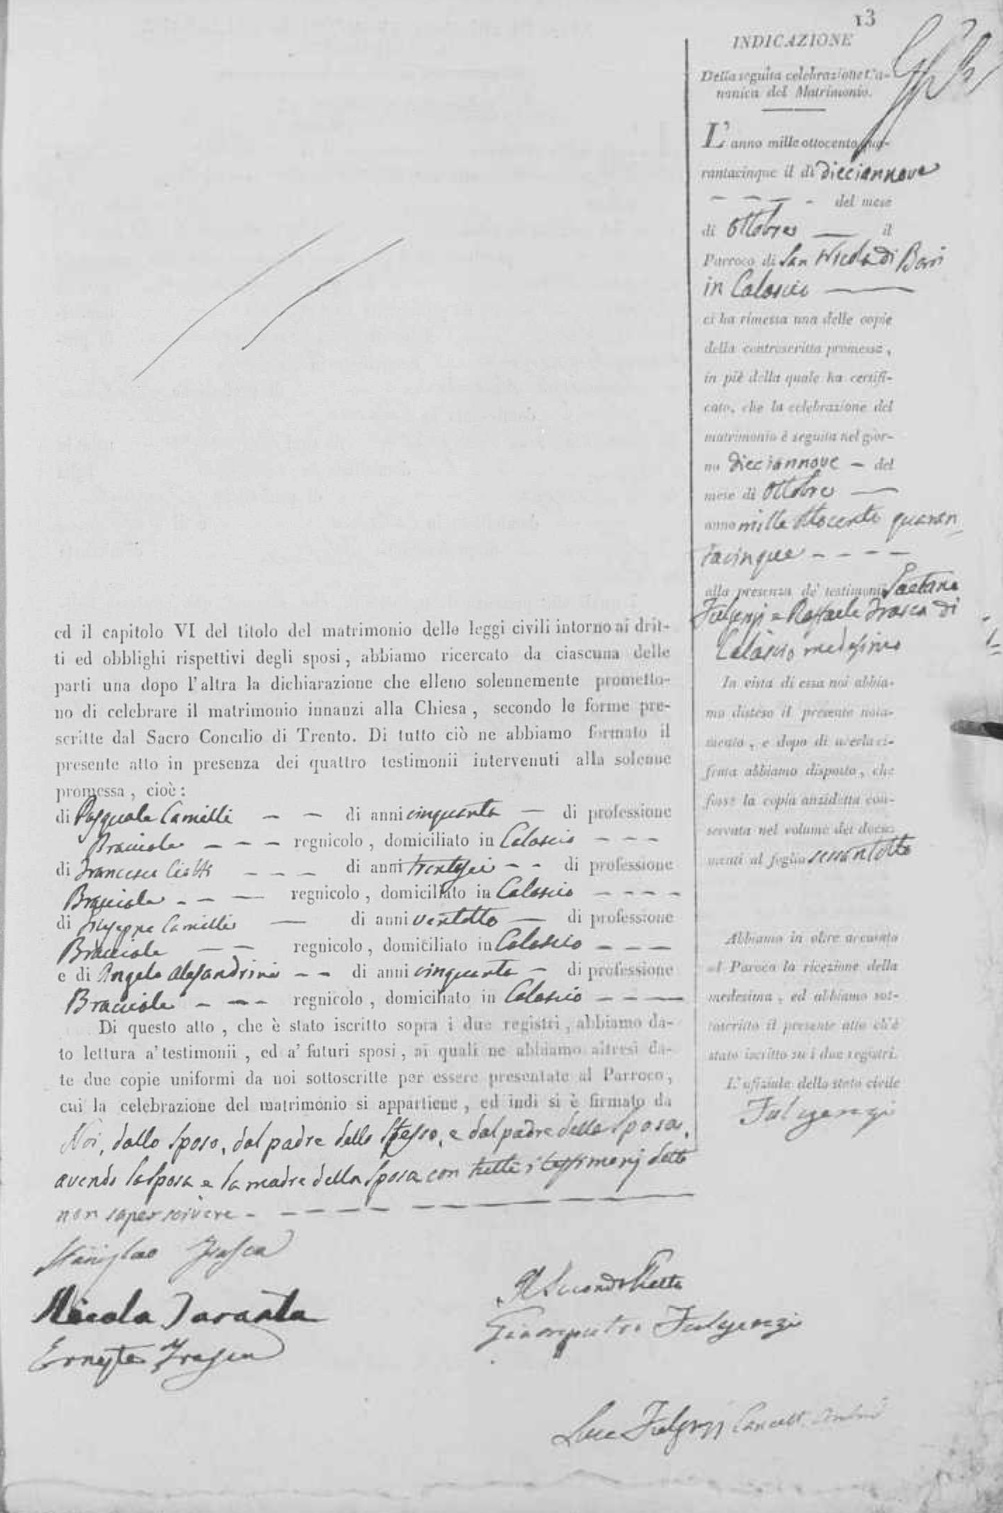 13
INDICAZIONE
Della seguita celebrazione Ca-
nonica del Matrimonio.
L'anno mille ottocento qua-
rantacinque il dì dieciannove
del mese
di Ottobre il
Parroco di San Nicola di Bari
in Calascio
ci ha rimessa una delle copie
della controscritta promessa,
in piè della quale ha certifi-
cato, che la celebrazione del
matrimonio è seguita nel gior-
no dieciannove del
mese di Ottobre
anno mille ottocento quaran
tacinque
alla presenza de' testimonii Gaetano
Fulgenzj e Raffaele Frasca di
Calascio medesimo
In vista di essa noi abbia-
mo disteso il presente nota-
mento, e dopo di averla ci-
frata abbiamo disposto, che
fosse la copia anzidetta con-
servata nel volume dei docu-
menti al foglio
Abbiamo in oltre accusato
al Paroco la ricezione della
medesima, ed abbiamo sot-
toscritto il presente atto ch'è
stato iscritto su i due registri.
L'ufiziale dello stato civile
Fulgenzj
ed il capitolo VI del titolo del matrimonio delle leggi civili intorno ai drit-
ti ed obblighi rispettivi degli sposi, abbiamo ricercato da ciascuna delle
parti una dopo l'altra la dichiarazione che elleno solennemente prometto-
no di celebrare il matrimonio innanzi alla Chiesa, secondo le forme pre-
scritte dal Sacro Concilio di Trento. Di tutto ciò ne abbiamo formato il
presente atto in presenza dei quattro testimonii intervenuti alla solenne
promessa, cioè:
di Pasquale Camilli - - di anni cinquanta - di professione
Bracciale - - - regnicolo, domiciliato in Calascio - - -
di Francesco - - - di anni trentasei - - di professione
Bracciale - - - regnicolo, domiciliato in Calascio - - - -
di Giuseppe Camilli - di anni ventotto - di professione
Bracciale - - regnicolo, domiciliato in Calascio - - -
e di Angelo Alesandrini - - di anni cinquanta - di professione
Bracciale - - - regnicolo, domiciliato in Calascio - - - -
Di questo atto, che è stato iscritto sopra i due registri, abbiamo da-
to lettura a' testimonii, ed a' futuri sposi, ai quali ne abbiamo altresì da-
te due copie uniformi da noi sottoscritte per essere presentate al Parroco,
cui la celebrazione del matrimonio si appartiene, ed indi si è firmato da
Noi, dallo sposo, dal padre dello stesso, e dal padre della sposa,
avendo la sposa e la madre della sposa con tutti i testimonj detto
non saper scrivere - - - - - - - - -
Stanislao Frasca
Nicola Taranta
Ernesto Frasca
Il Secondo Eletto
Giampietro Fulgenzj
Luca Fulgenzj Cancell.